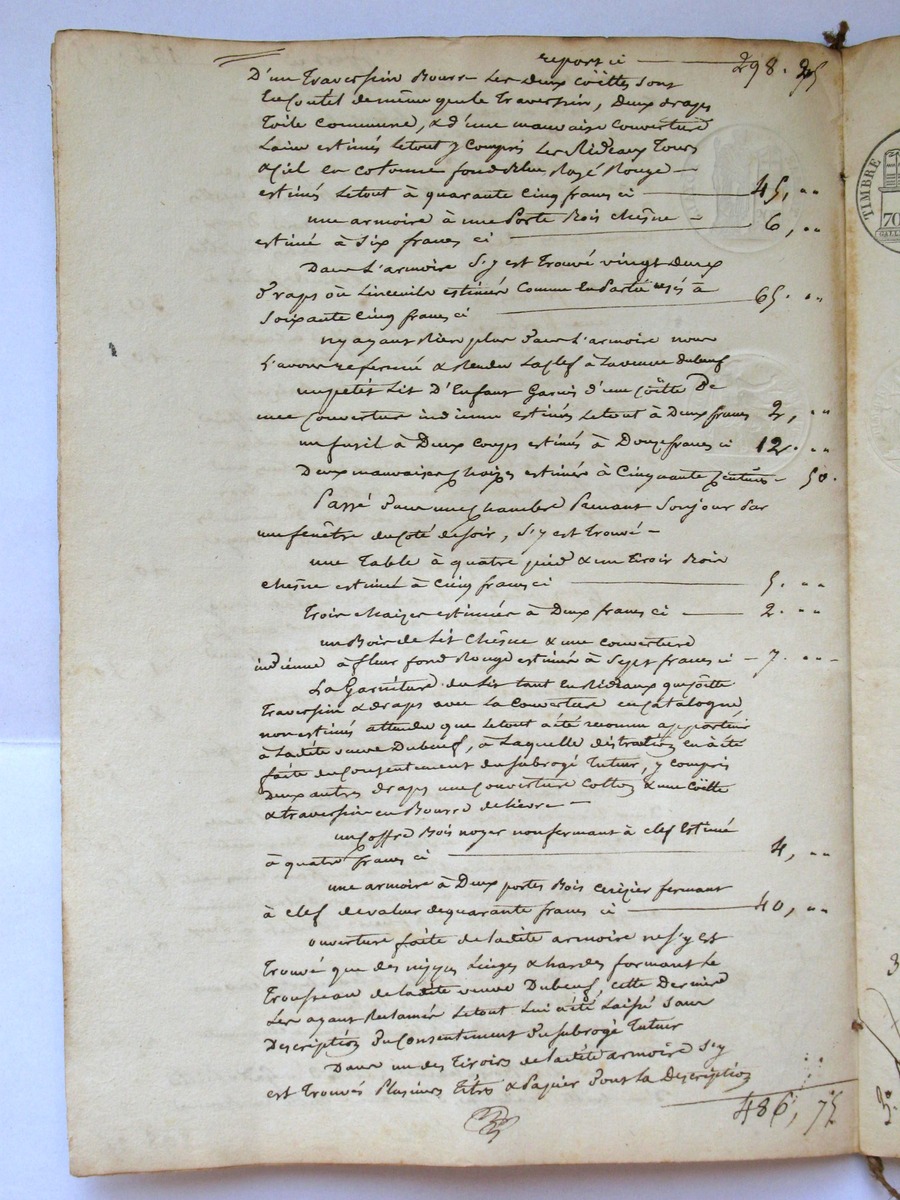 report ci — 298. 25
D'un Traversin Bourre Les deux Coëttes sont
En Coutel de même que le Traversin, deux draps
Toile Commune, & d'une mauvaise Couverture
Laine estimés Le tout y Compris Les Rideaux Tours
& Ciel en cotonne fond bleu Rayé Rouge —
estimés Le tout à quarante Cinq francs ci — 45, "
une armoire à une Porte Bois Chesne -
estimé à Six francs ci — 6, "
Dans L'armoire S'y est Trouvé vingt Deux
draps ou Linceuils estimés Comme En Partie usés à
Soixante Cinq francs ci — 65. "
n'y ayant Rien plus dans L'armoire nous
L'avons refermé & Rendu La clef à La veuve Dubeuf
un petit Lit D'Enfant Garni d'une Coëtte De
une Couverture indienne estimés Le tout à Deux francs 2, "
un fusil à Deux Coups estimés à Douze francs ci 12. "
Deux mauvaises Chaizes estimées à Cinquante Centimes - 50.
Passé dans une Chambre Prenant Son jour Par
une fenêtre du Coté de Soir, S'y est Trouvé —
une Table à quatre pied & un tiroir Bois
chesne estimée à Cinq francs ci — 5. "
Trois chaizes estimées à Deux francs ci — 2. "
un Bois de Lit Chesne & une couverture
indienne à fleur fond Rouge estimés à Sept francs ci — 7. "
La Garniture du Lit tant En Rideaux que Coëtte
Traversin & draps avec La Couverture en Catalogne,
non estimés attendu que Le tout a été reconnu appartenir
à Ladite veuve Dubeuf, à Laquelle distration en a été
faite du Consentement du Subrogé Tuteur, y compris
Deux autres draps une Couverture Coton & une Coëtte
& traversin en Bourre de lievre —
un Coffre Bois noyer non fermant à clef Estimé
à quatre francs ci — 4, "
une armoire à Deux portes Bois Cerizier fermant
à clef de valeur de quarante francs ci — 40, "
ouverture faite de Ladite armoire ne S'y est
Trouvé que des Linges & hardes formant Le
Trousseau de Ladite veuve Dubeuf, cette Dernière
Les ayant Reclamés Le tout Lui a été Laissé Sans
Description du Consentement du Subrogé Tuteur
Dans un des Tiroirs de Ladite armoire S'y
est Trouvés Plusieurs Titres & Papier dont La Description
486, 75
TIMBRE
70